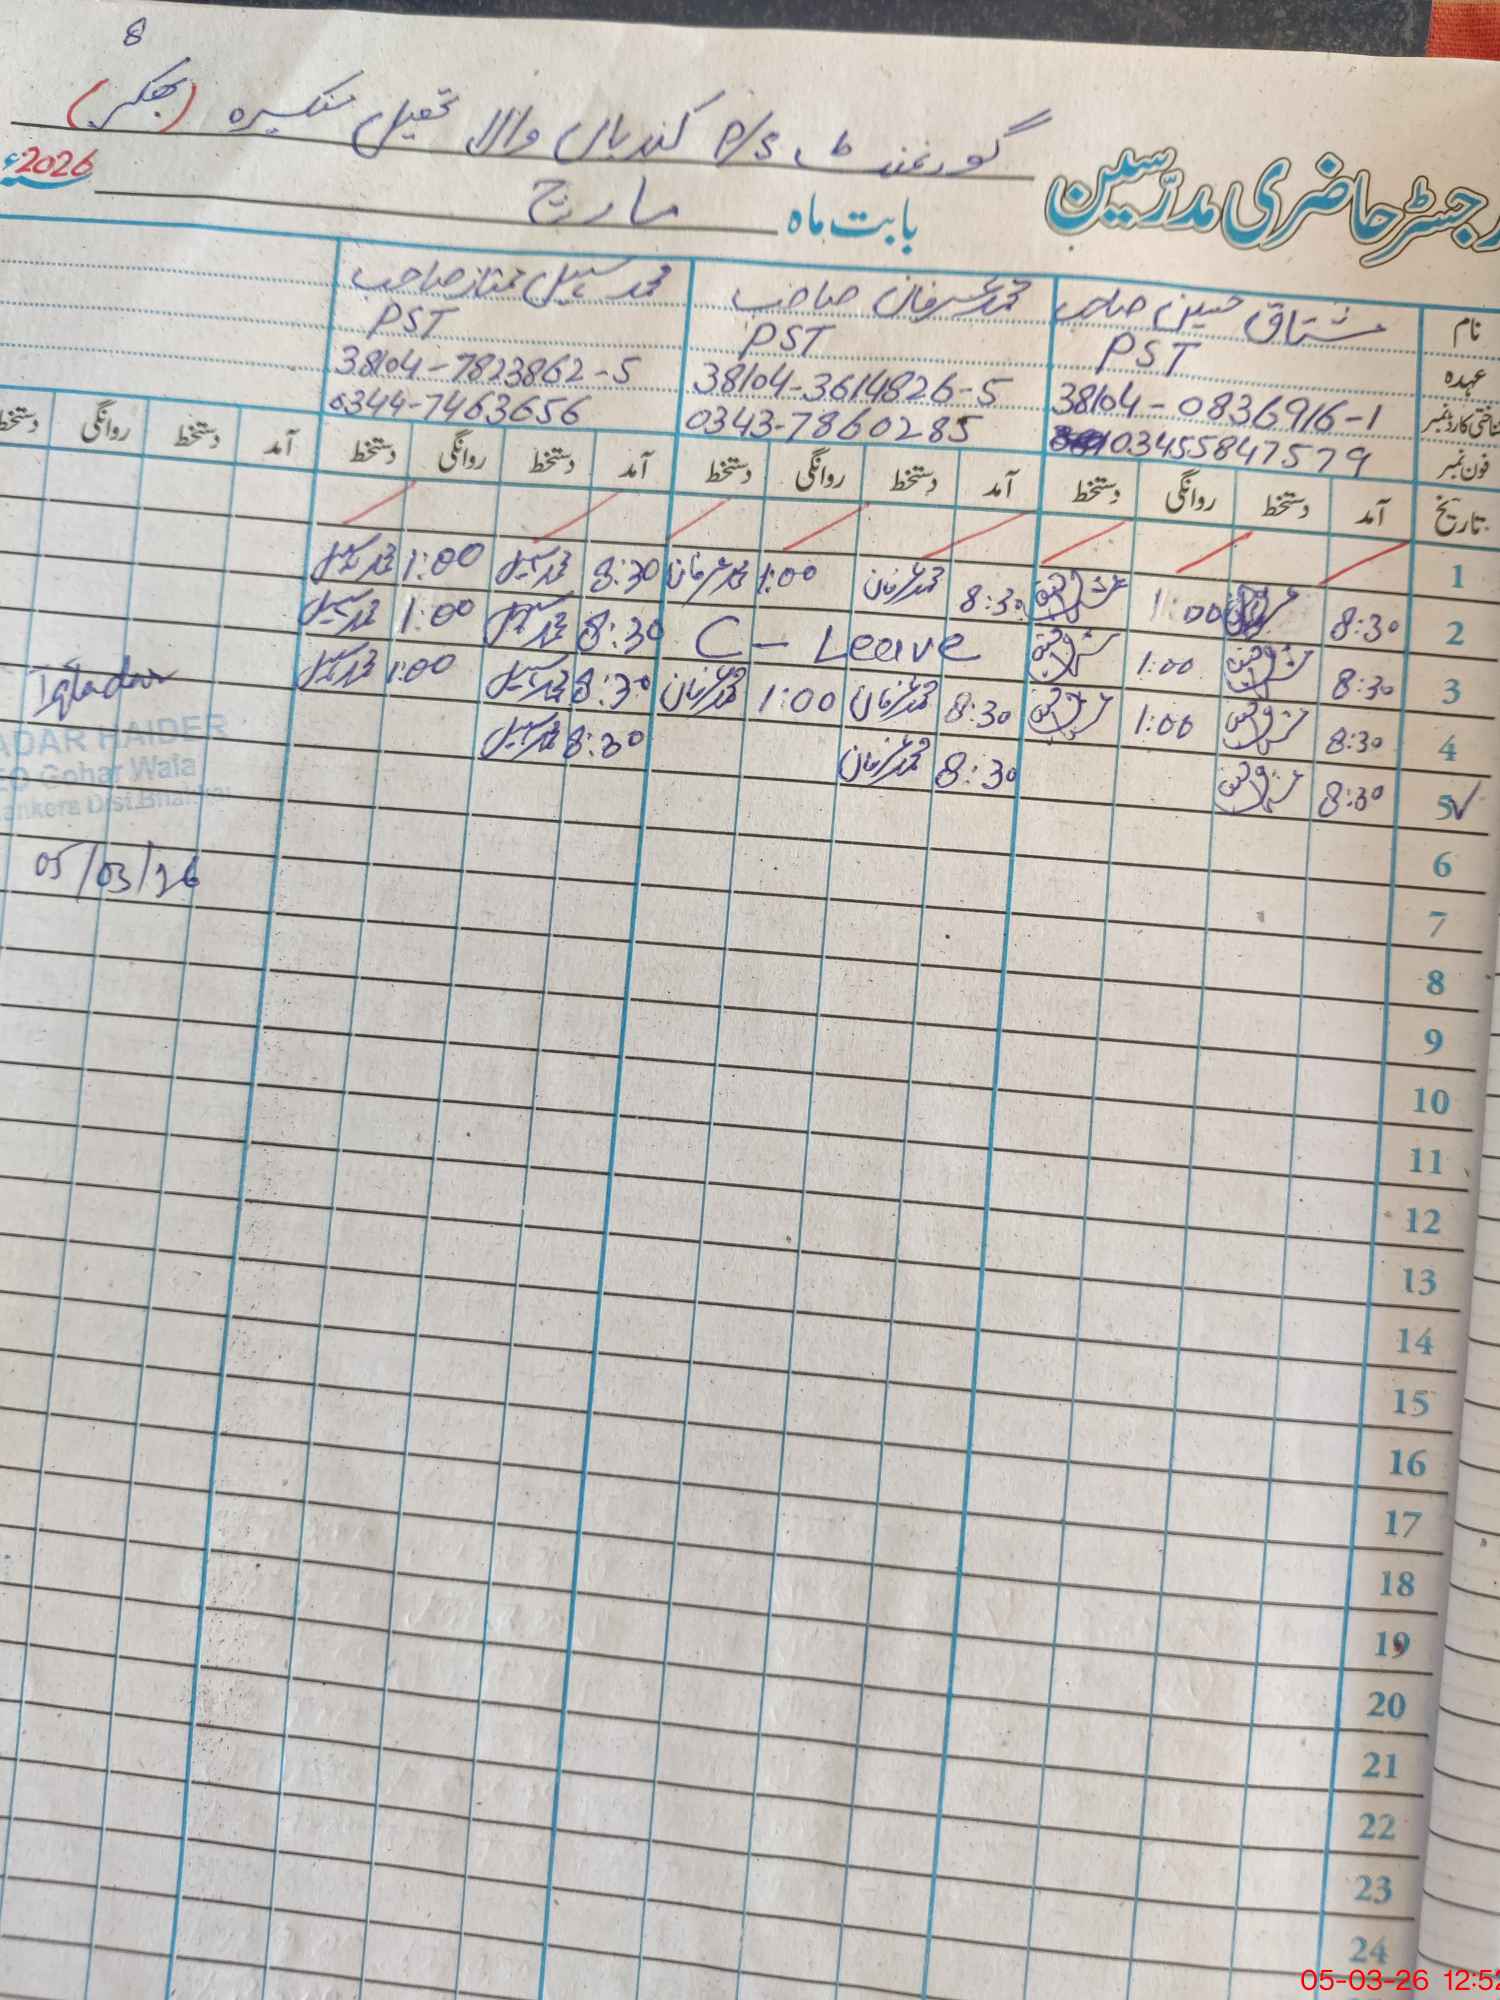 8
گورنمنٹ P/S کندیاں والا تحصیل منکیرہ (بھکر)
رجسٹر حاضری مدرسین
بابت ماہ مارچ 2026ء
نام مشتاق حسین صاحب محمد عرفان صاحب محمد سہیل ممتاز صاحب
عہدہ PST PST PST
شناختی کارڈ نمبر 38104-0836916-1 38104-3614826-5 38104-7823862-5
فون نمبر 03455847579 0343-7860285 0344-7463656
تاریخ آمد دستخط روانگی دستخط آمد دستخط روانگی دستخط آمد دستخط روانگی دستخط آمد دستخط روانگی دستخط
1
2 8:30 1:00 8:30 محمد عرفان 1:00 محمد عرفان 8:30 محمد سہیل 1:00 محمد سہیل
3 8:30 1:00 C-Leave 8:30 محمد سہیل 1:00 محمد سہیل
4 8:30 1:00 8:30 محمد عرفان 1:00 محمد عرفان 8:30 محمد سہیل 1:00 محمد سہیل
5 8:30 8:30 محمد عرفان 8:30 محمد سہیل
Iqtadar
ADAR HAIDER
EO Gohar Wala
ankera Dist.Bhakkar
05/03/26
6
7
8
9
10
11
12
13
14
15
16
17
18
19
20
21
22
23
24
05-03-26 12:52